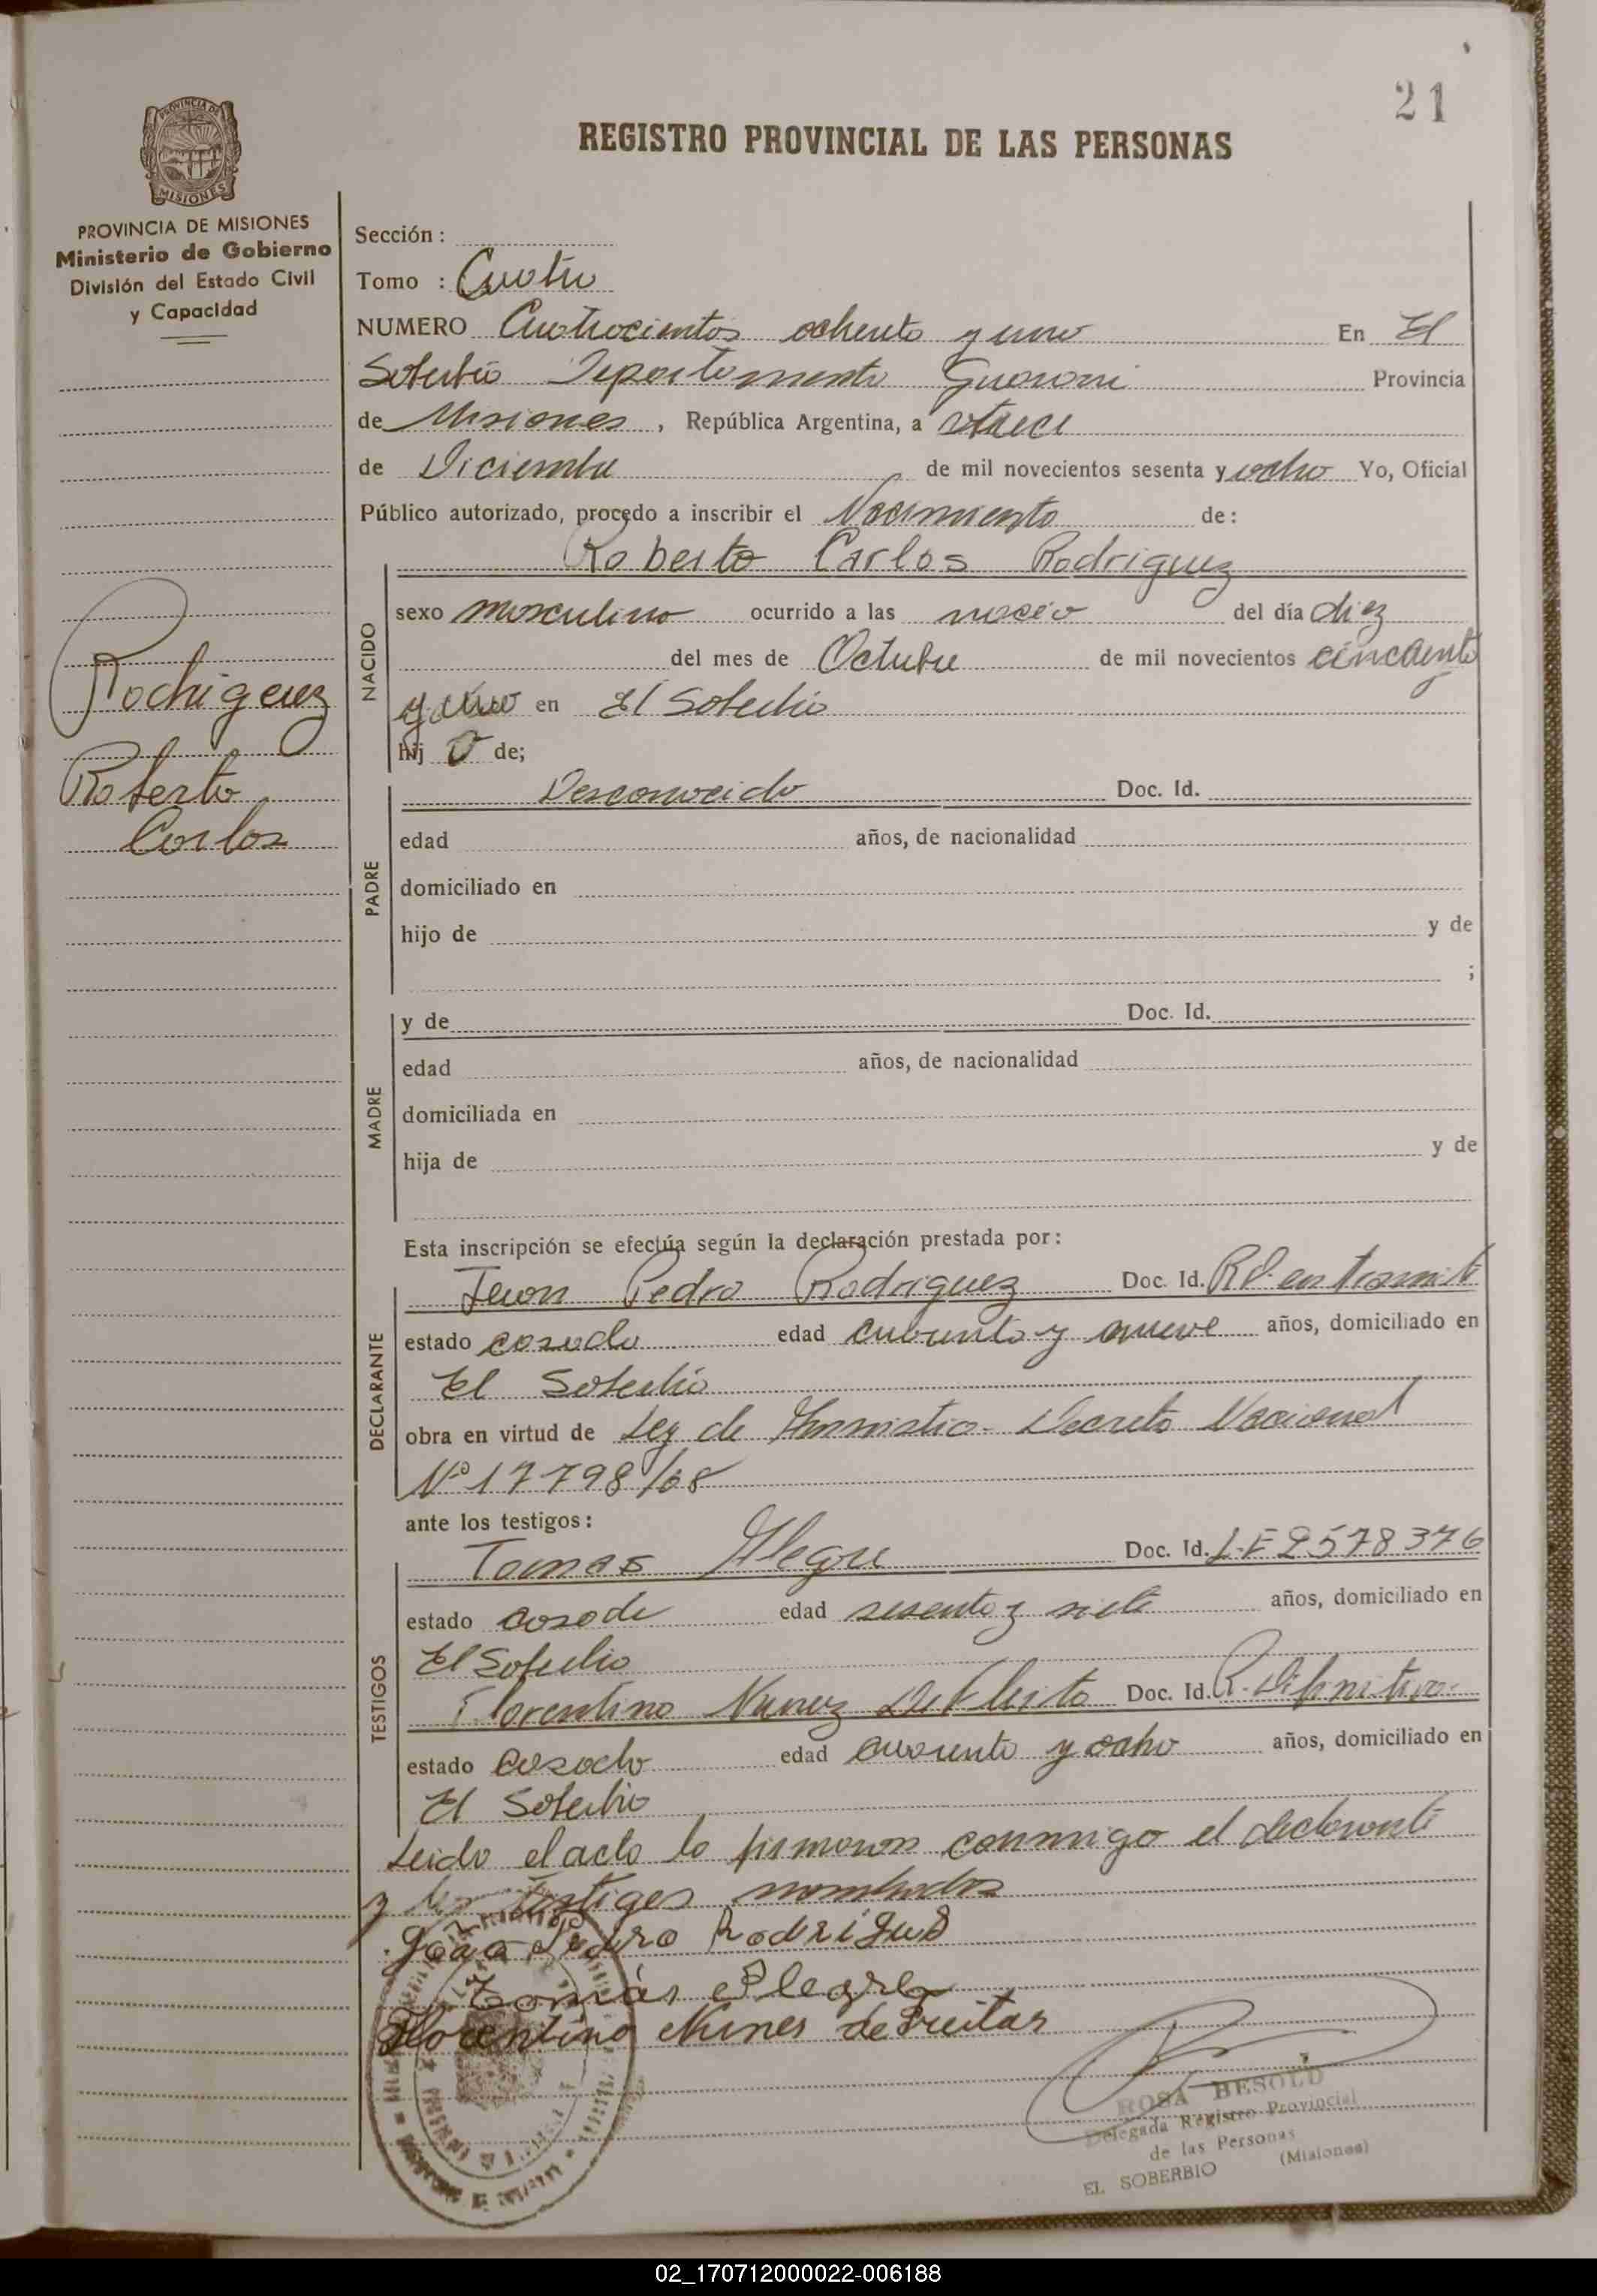 21
REGISTRO PROVINCIAL DE LAS PERSONAS
PROVINCIA DE MISIONES
MISIONES
PROVINCIA DE MISIONES
Ministerio de Gobierno
División del Estado Civil
y Capacidad
Rodriguez
Roberto
Carlos
Sección :
Tomo : Cuatro
NUMERO Cuatrocientos ochenta y uno En El
Soberbio Departamento Guarani Provincia
de Misiones, República Argentina, a trece
de Diciembre de mil novecientos sesenta y ocho Yo, Oficial
Público autorizado, procedo a inscribir el Nacimiento de:
Roberto Carlos Rodriguez
NACIDO
sexo masculino ocurrido a las nacio del día diez
del mes de Octubre de mil novecientos cincuenta
y uno en El Soberbio
hij o de;
PADRE
Desconocido Doc. Id.
edad años, de nacionalidad
domiciliado en
hijo de y de
;
MADRE
y de Doc. Id.
edad años, de nacionalidad
domiciliada en
hija de y de
Esta inscripción se efectúa según la declaración prestada por:
DECLARANTE
Juan Pedro Rodriguez Doc. Id. R.P. en tramite
estado casado edad cuarenta y nueve años, domiciliado en
El Soberbio
obra en virtud de Ley de Amnistia - Decreto Nacional
Nº 17798/68
ante los testigos:
TESTIGOS
Tomas Alegre Doc. Id. L.E 2578376
estado casado edad sesenta y siete años, domiciliado en
El Soberbio
Florentino Nunez De Doc. Id. R. Difinitiva
estado casado edad cuarenta y ocho años, domiciliado en
El Soberbio
Leido el acta la firmaron conmigo el declarante
y los testigos nombrados
Pedro Rodrigues
Tomás Alegre
Florentino Nunes de Freitas
ROSA BESOLD
Delegada Registro Provincial
de las Personas
EL SOBERBIO (Misiones)
02_170712000022-006188